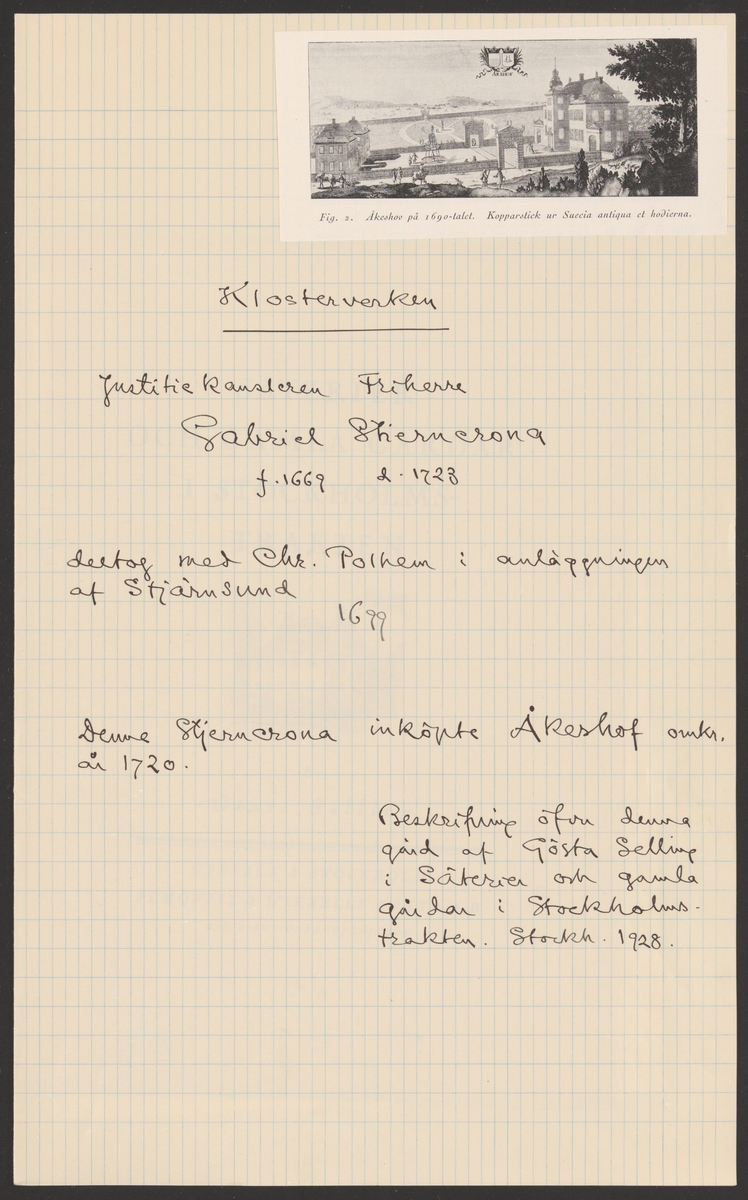 ÅKESHOF
Fig. 2. Åkeshov på 1690-talet. Kopparstick ur Suecia antiqua et hodierna.
Klosterverken
Justitiekansleren Friherre
Gabriel Stierncrona
f. 1669 d. 1723
deltog med Chr. Polhem i anläggningen
af Stjärnsund
1699
Denne Stjerncrona inköpte Åkeshof omkr.
år 1720.
Beskrifning öfver denna
gård af Gösta Selling
i Säterier och gamla
gårdar i Stockholms-
trakten. Stockh. 1928.